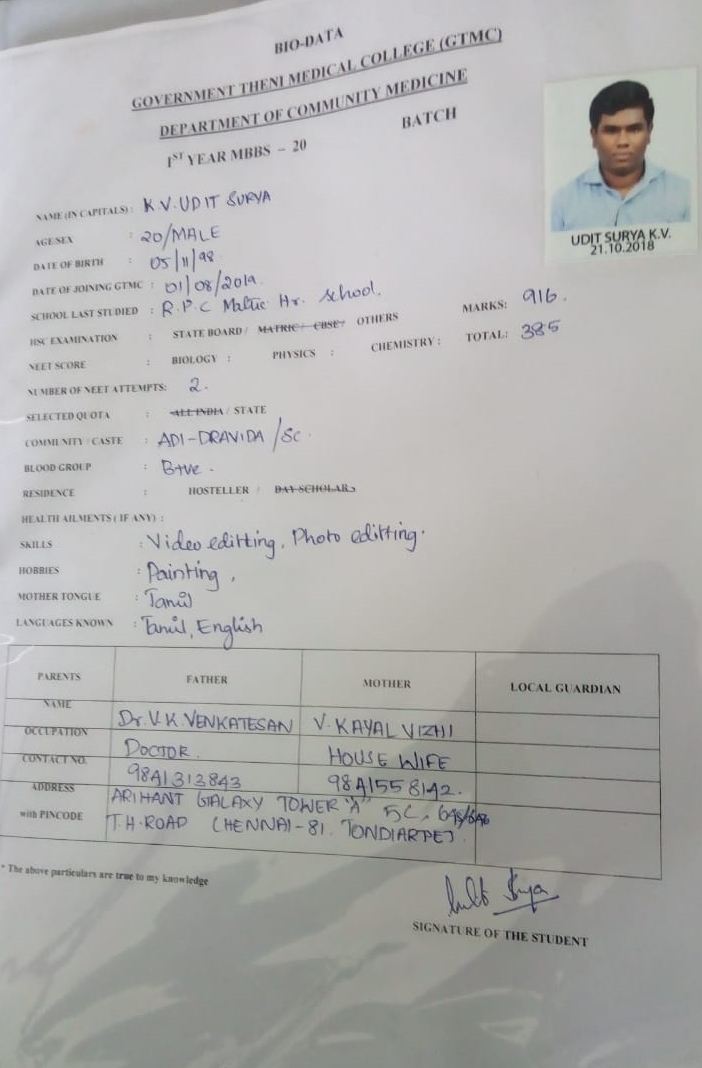 BIO-DATA
GOVERNMENT THENI MEDICAL COLLEGE (GTMC)
DEPARTMENT OF COMMUNITY MEDICINE
1ST YEAR MBBS – 20 BATCH
UDIT SURYA K.V.
21.10.2018
NAME (IN CAPITALS) : K.V. UDIT SURYA
AGE/SEX : 20/MALE
DATE OF BIRTH : 05/11/98
DATE OF JOINING GTMC : 01/08/2019
SCHOOL LAST STUDIED : R.P.C Matric Hr. School.
HSC EXAMINATION : STATE BOARD / MATRIC / CBSE / OTHERS MARKS: 916.
NEET SCORE : BIOLOGY : PHYSICS : CHEMISTRY : TOTAL: 385
NUMBER OF NEET ATTEMPTS: 2.
SELECTED QUOTA : ALL INDIA / STATE
COMMUNITY / CASTE : ADI-DRAVIDA / SC.
BLOOD GROUP : B+ve.
RESIDENCE : HOSTELLER / DAY SCHOLAR
HEALTH AILMENTS ( IF ANY) :
SKILLS : Video editting, Photo editting.
HOBBIES : Painting,
MOTHER TONGUE : Tamil
LANGUAGES KNOWN : Tamil, English
PARENTS FATHER MOTHER LOCAL GUARDIAN
NAME Dr. V.K. VENKATESAN V. KAYAL VIZHI
OCCUPATION DOCTOR. HOUSE WIFE
CONTACT NO. 9841313843 9841558142.
ADDRESS ARIHANT GALAXY TOWER "A" 5C,
with PINCODE T.H. ROAD CHENNAI-81. TONDIARPET.
* The above particulars are true to my knowledge
Udit Surya
SIGNATURE OF THE STUDENT